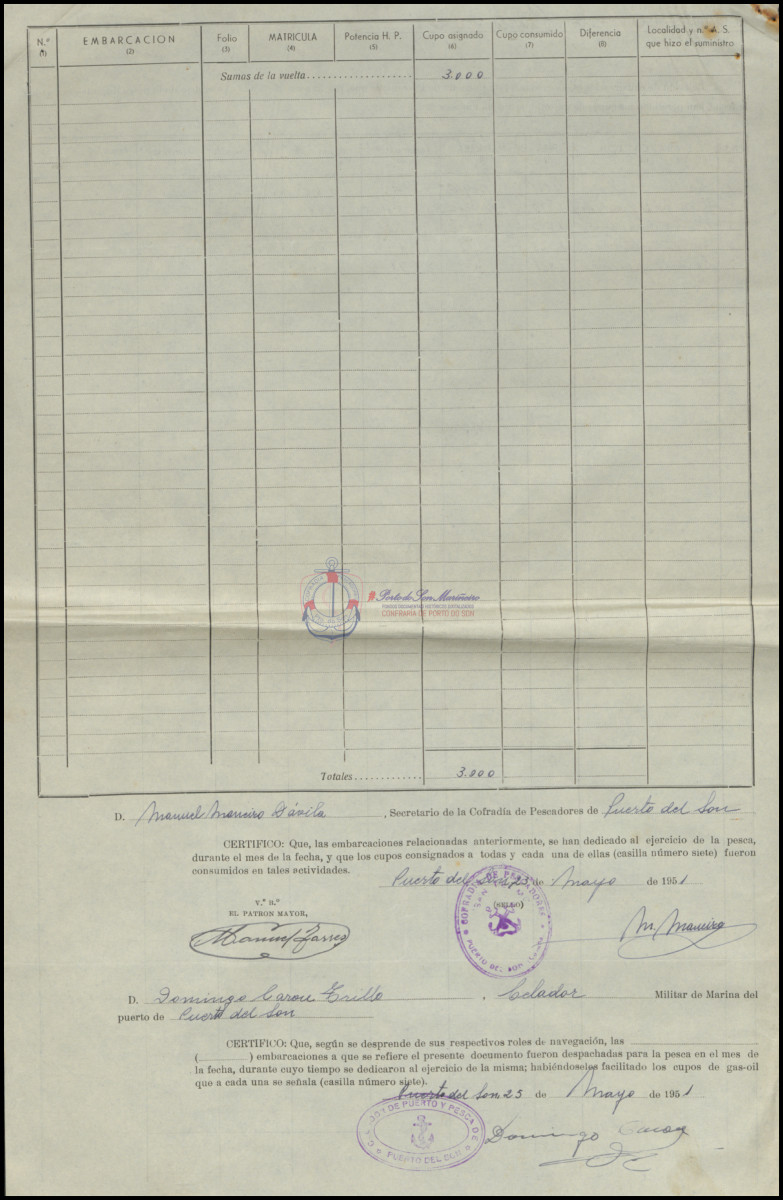 N.º EMBARCACION Folio MATRICULA Potencia H. P. Cupo asignado Cupo consumido Diferencia Localidad y n.º A. S. que hizo el suministro
(1) (2) (3) (4) (5) (6) (7) (8)
Sumas de la vuelta.................... 3.000
Porto do Son Mariñeiro
CONFRARÍA DE PORTO DO SON
Totales............. 3.000
D. Manuel Maneiro Dávila, Secretario de la Cofradía de Pescadores de Puerto del Son
CERTIFICO: Que, las embarcaciones relacionadas anteriormente, se han dedicado al ejercicio de la pesca,
durante el mes de la fecha, y que los cupos consignados a todas y cada una de ellas (casilla número siete) fueron
consumidos en tales actividades.
Puerto del Son, 23 de Mayo de 1951
V.º B.º
EL PATRON MAYOR,
(SELLO)
COFRADIA DE PESCADORES
PUERTO DEL SON
M. Maneiro
D. Domingo Carou Trillo, Celador Militar de Marina del
puerto de Puerto del Son
CERTIFICO: Que, según se desprende de sus respectivos roles de navegación, las
( ) embarcaciones a que se refiere el presente documento fueron despachadas para la pesca en el mes de
la fecha, durante cuyo tiempo se dedicaron al ejercicio de la misma; habiéndoseles facilitado los cupos de gas-oil
que a cada una se señala (casilla número siete).
Puerto del Son 23 de Mayo de 1951
DE PUERTO Y PESCA DE
PUERTO DEL SON
Domingo Carou